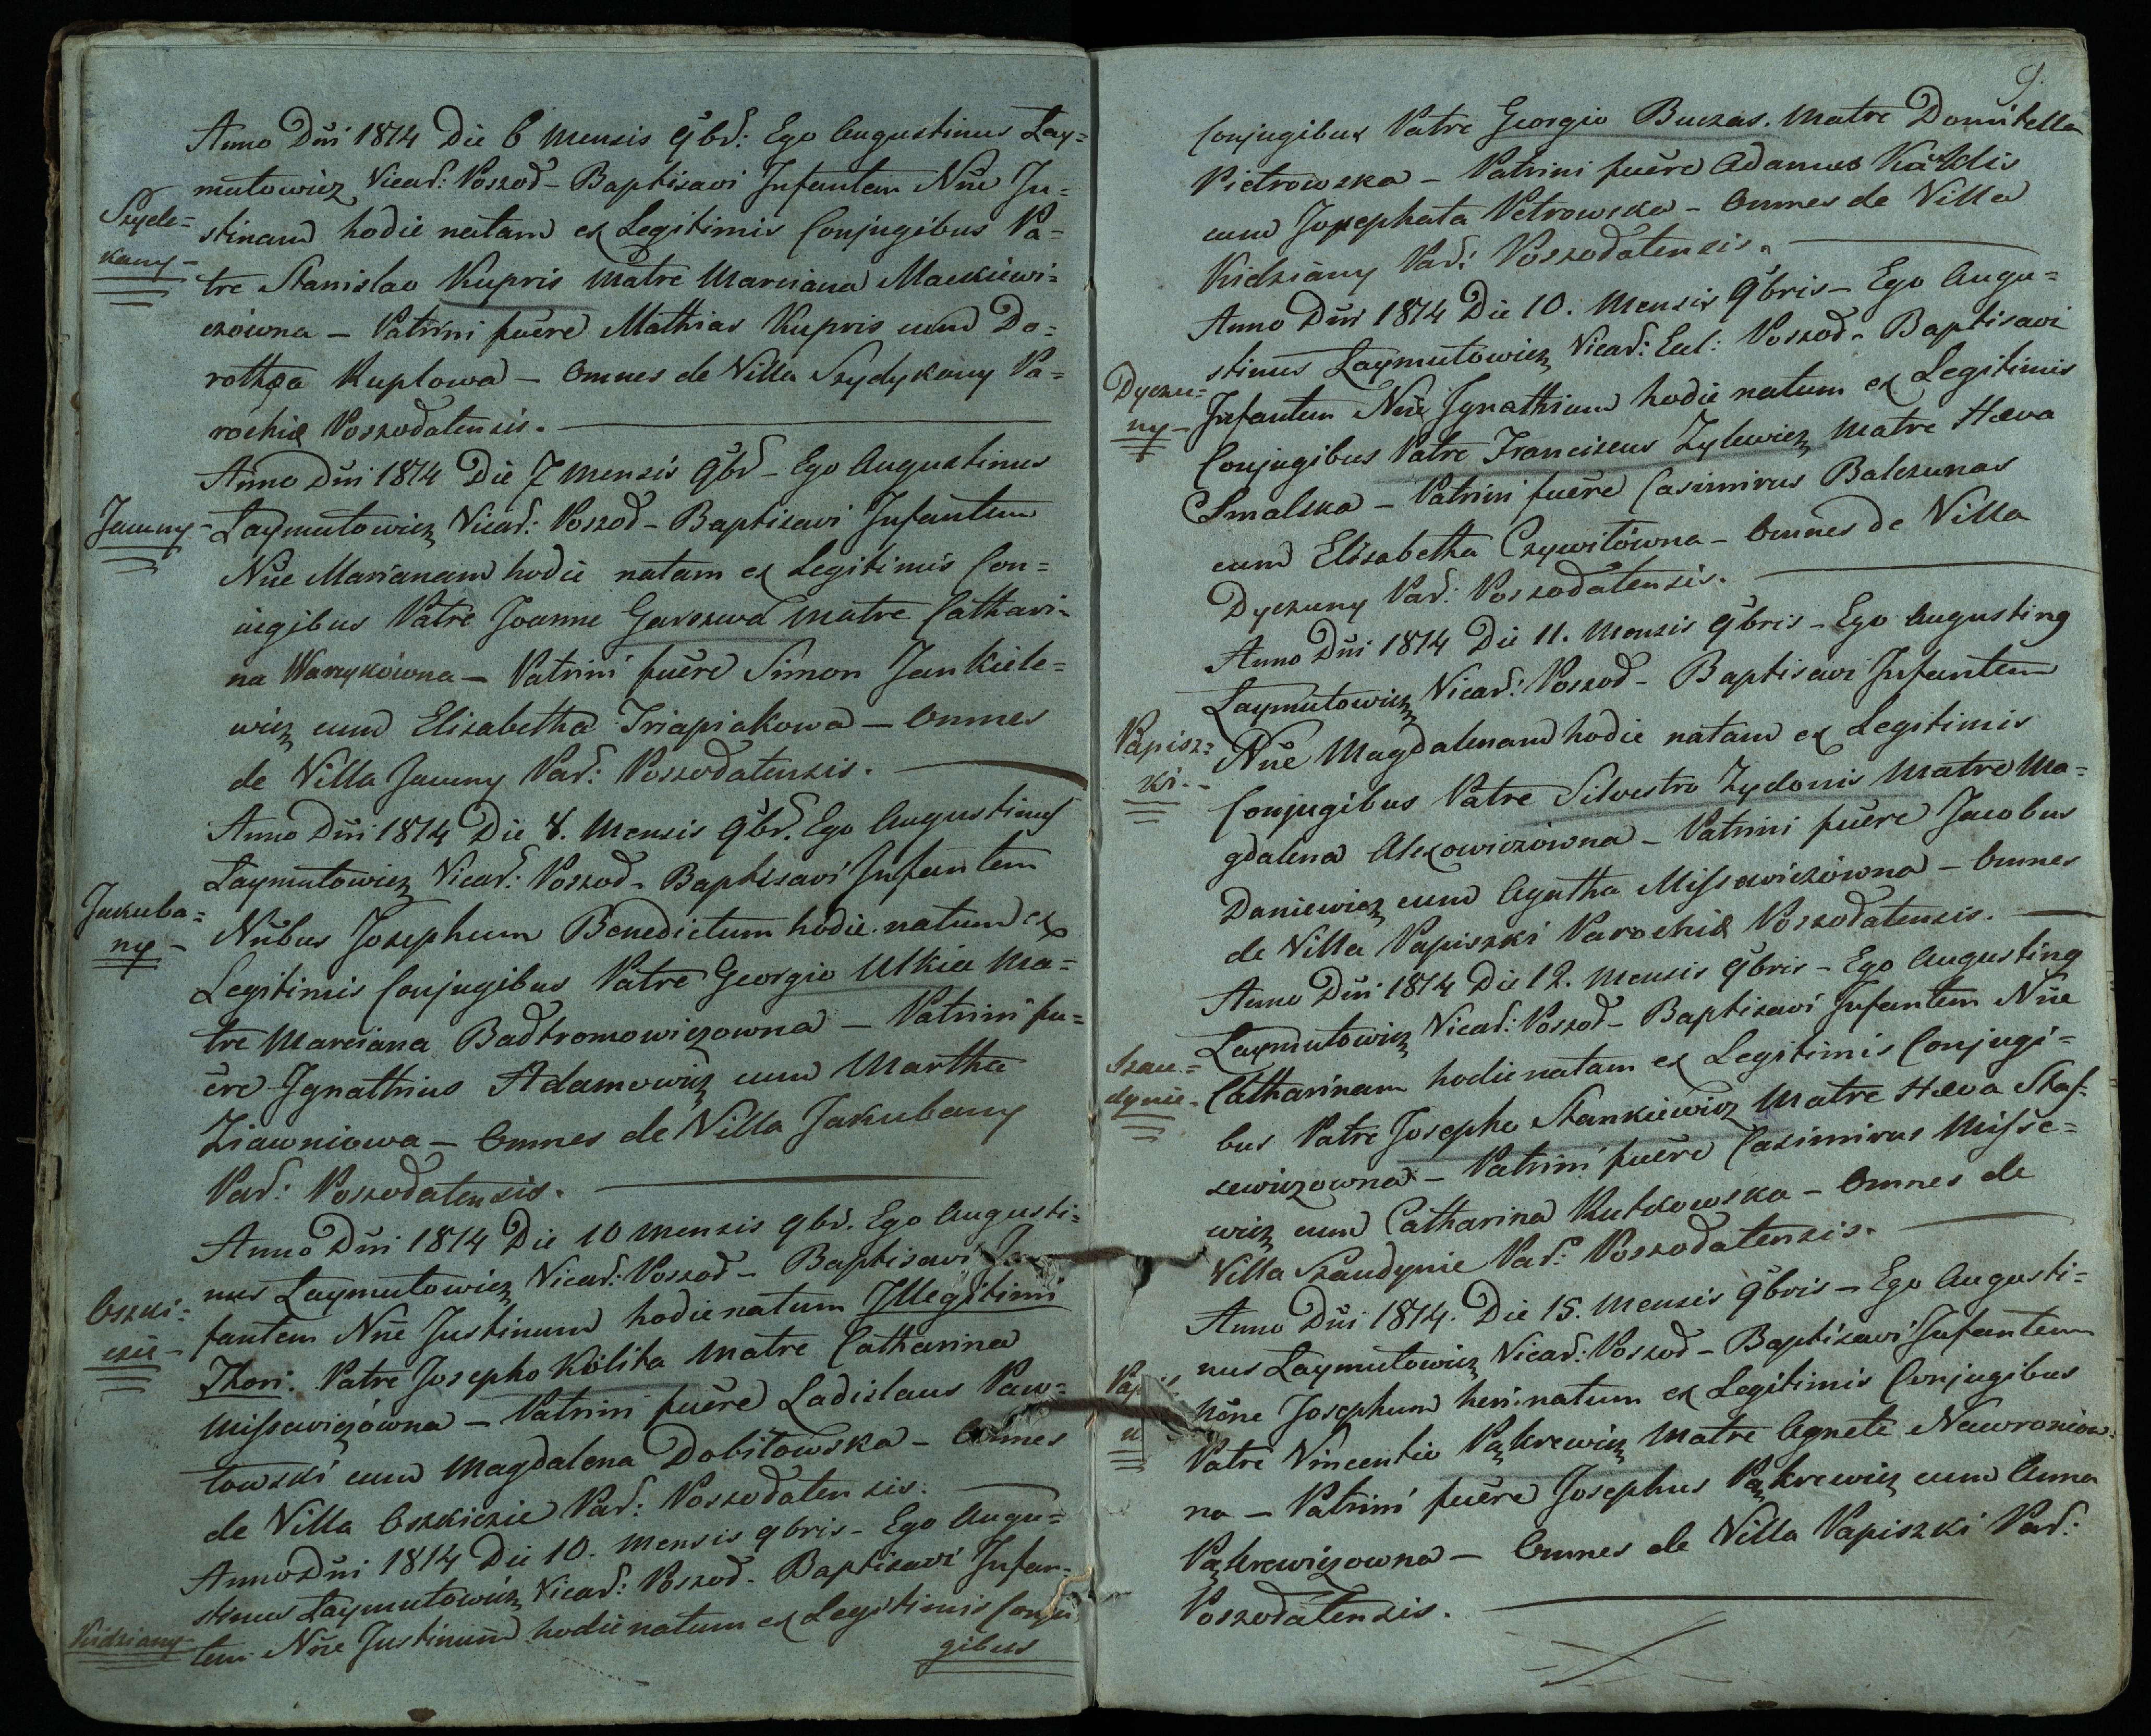 Anno Dni 1814 Die 6 Mensis 9br: Ego Augustinus Lay=
mutowicz Vicar: Poszod – Baptisavi Infantem Nne Ju=
Szyde=
stinam hodie natam ex Legitimis Conjugibus Pa=
kany –
tre Stanislao Kupris Matre Marciana Mackiewi=
czówna – Patrini fuêre Mathias Kupris cum Do=
rothea Kuplowa – Omnes de Villa Szydykany Pa=
rochiæ Poszodatensis.
Anno Dni 1814 Die 7 Mensis 9br – Ego Augustinus
Jauny – Laymutowicz Vicar: Poszod – Baptisavi Infantem
Nne Marianam hodie natam ex Legitimis Con=
iugibus Patre Joanne Garszwa Matre Cathari=
na Warnykówna – Patrini fuêre Simon Jankiele=
wicz cum Elisabetha Triapiakowa – Omnes
de Villa Jauny Par: Poszodatensis.
Anno Dni 1814 Die 8. Mensis 9br. Ego Augustinus
Laymutowicz Vicar: Poszod – Baptisavi Infantem
Jakuba=
ny – Nnbus Josephum Benedictum hodie natum ex
Legitimis Conjugibus Patre Georgio Utkia Ma=
tre Marciana Badtromowiczowna – Patrini fu=
êre Ignathius Adamowicz cum Martha
Ziawniowa – Omnes de Villa Jakubany
Par: Poszodatensis.
Anno Dni 1814 Die 10 Mensis 9br. Ego Augusti=
nus Laymutowicz Vicar: Poszod – Baptisavi In
Oszki=
czie – fantem Nne Justinum hodie natum Illegitimi
Thori. Patre Josepho Kolita Matre Catharina
Missewiczówna – Patrini fuêre Ladislaus Paw=
towski cum Magdalena Dobitowska – Omnes
de Villa Oszkiczie Par: Poszodatensis.
Anno Dni 1814 Die 10. Mensis 9bris – Ego Augu=
stinus Laymutowicz Vicar: Poszod – Baptisavi Infan=
Kidziany – tem Nne Justinum hodie natum ex Legitimis Conju
gibus
9.
Conjugibus Patre Georgio Buczas. Matre Domitella
Pietrowska – Patrini fuêre Adamus Każdis
cum Josephata Petrowska – Omnes de Villa
Kidziany Par: Poszodatensis.
Anno Dni 1814 Die 10. Mensis 9bris – Ego Augu=
stinus Laymutowicz Vicar: Eccl: Poszod – Baptisavi
Dyczu=
ny – Infantem Nne Ignathium hodie natum ex Legitimis
Conjugibus Patre Franciscus Zylewicz Matre Hæva
Smalska – Patrini fuêre Casimirus Balczunas
cum Elisabetha Czywitówna – Omnes de Villa
Dyczuny Par: Poszodatensis.
Anno Dni 1814 Die 11. Mensis 9bris – Ego Augustin9
Laymutowicz Vicar: Poszod – Baptisavi Infantem
Papisz=
ki – Nne Magdalenam hodie natam ex Legitimis
Conjugibus Patre Silvestro Zydonis Matre Ma=
gdalena Alexowiczówna – Patrini fuêre Jacobus
Daniewicz cum Agatha Missewiczówna – Omnes
de Villa Papiszki Parochiæ Poszodatensis.
Anno Dni 1814 Die 12. Mensis 9bris – Ego Augustin9
Laymutowicz Vicar: Poszod – Baptisavi Infantem Nne
Szau=
dynie – Catharinam hodie natam ex Legitimis Conjugi=
bus Patre Josepho Stankiewicz Matre Hæva Stas=
sewiczowna – Patrini fuêre Casimirus Misse=
wicz cum Catharina Rutkowska – Omnes de
Villa Szaudynie Par: Poszodatensis.
Anno Dni 1814. Die 15. Mensis 9bris – Ego Augusti=
nus Laymutowicz Vicar: Poszod – Baptisavi Infantem
Nône Josephum heri natum ex Legitimis Conjugibus
Patre Vincentio Pąkrewicz Matre Agnete Nawroniow=
na – Patrini fuêre Josephus Pąkrewicz cum Anna
Pąkrewiczowna – Omnes de Villa Papiszki Par:
Poszodatensis.